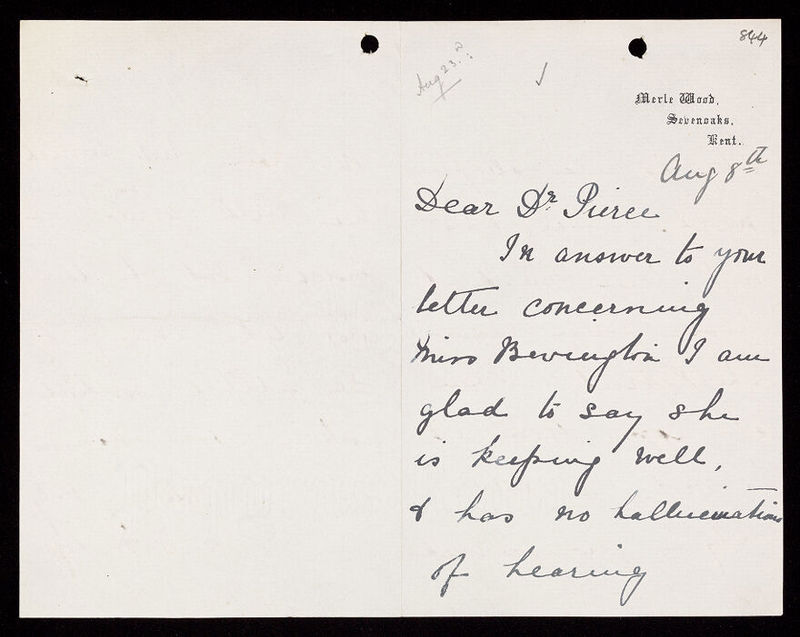 844
Aug 23.?
Merle Wood,
Sevenoaks,
Kent.
Aug 8th
Dear Dr Pierce
In answer to your
letter concerning
Miss Bevington I am
glad to say she
is keeping well,
& has no hallucinations
of hearing